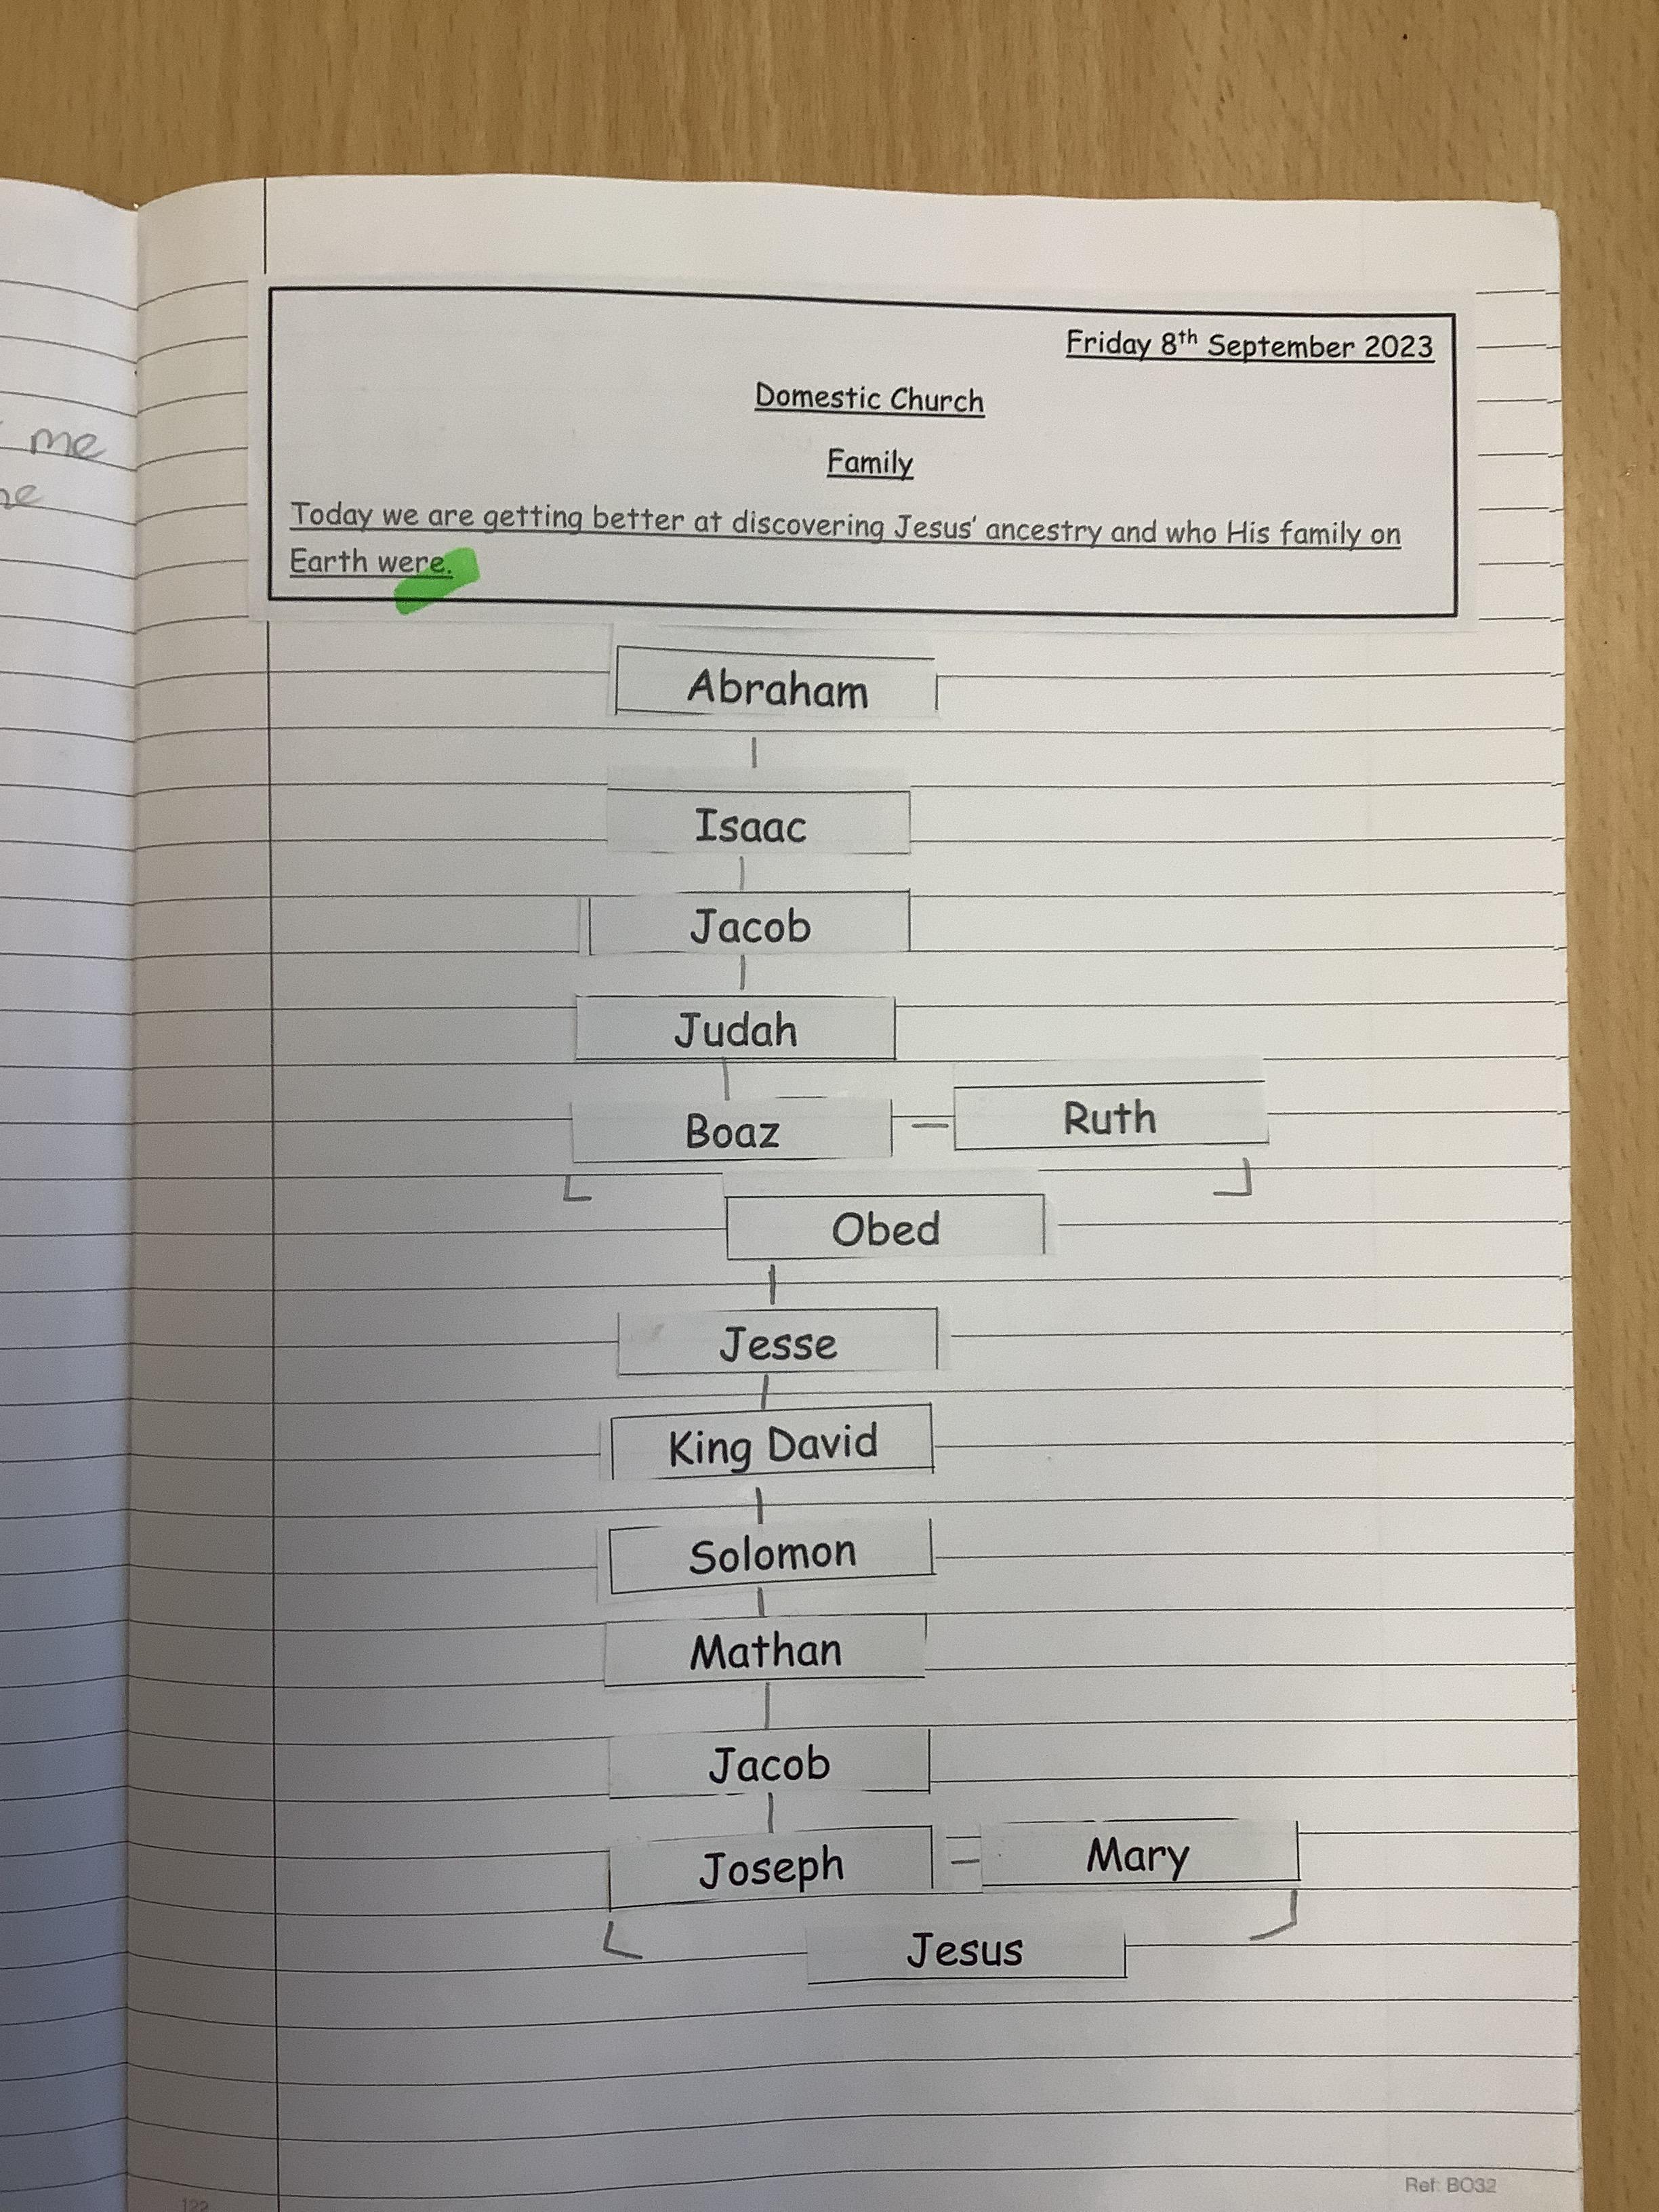 me
Friday 8th September 2023
Domestic Church
Family
Today we are getting better at discovering Jesus' ancestry and who His family on
Earth were.
Abraham
Isaac
Jacob
Judah
Boaz Ruth
Obed
Jesse
King David
Solomon
Mathan
Jacob
Joseph Mary
Jesus
Ref: BO32
122